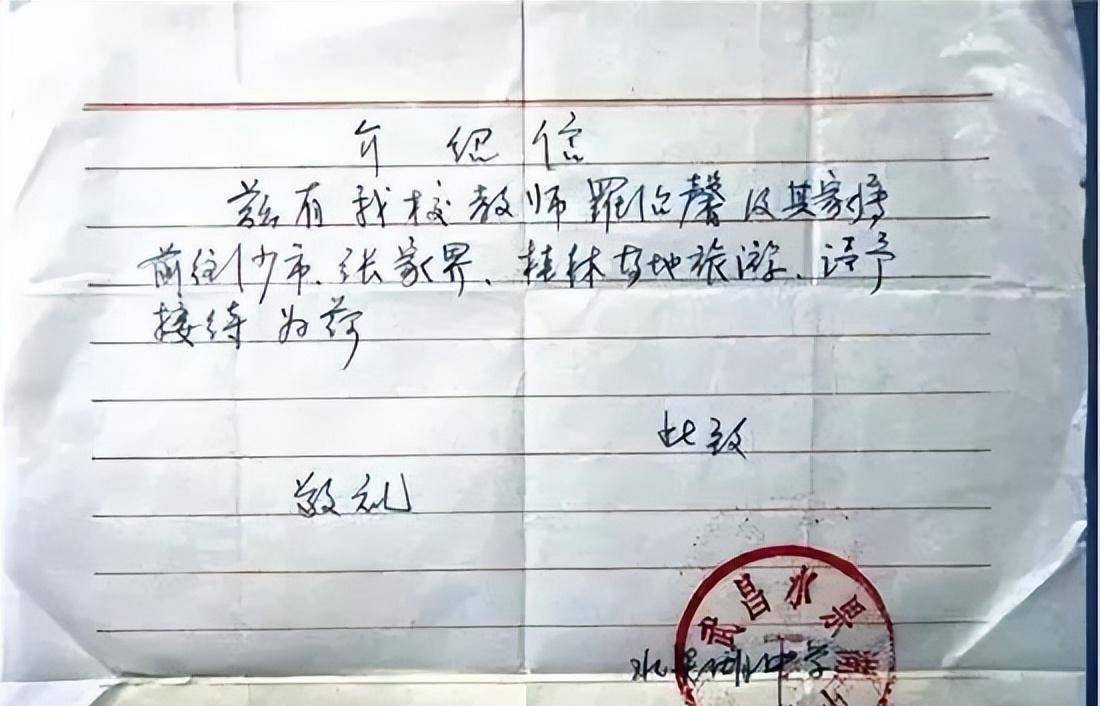 介绍信
兹有我校教师罗馨及其家属
前往沙市、张家界、桂林等地旅游、请予
接待为荷
此致
敬礼
武昌水果湖
水果湖中学